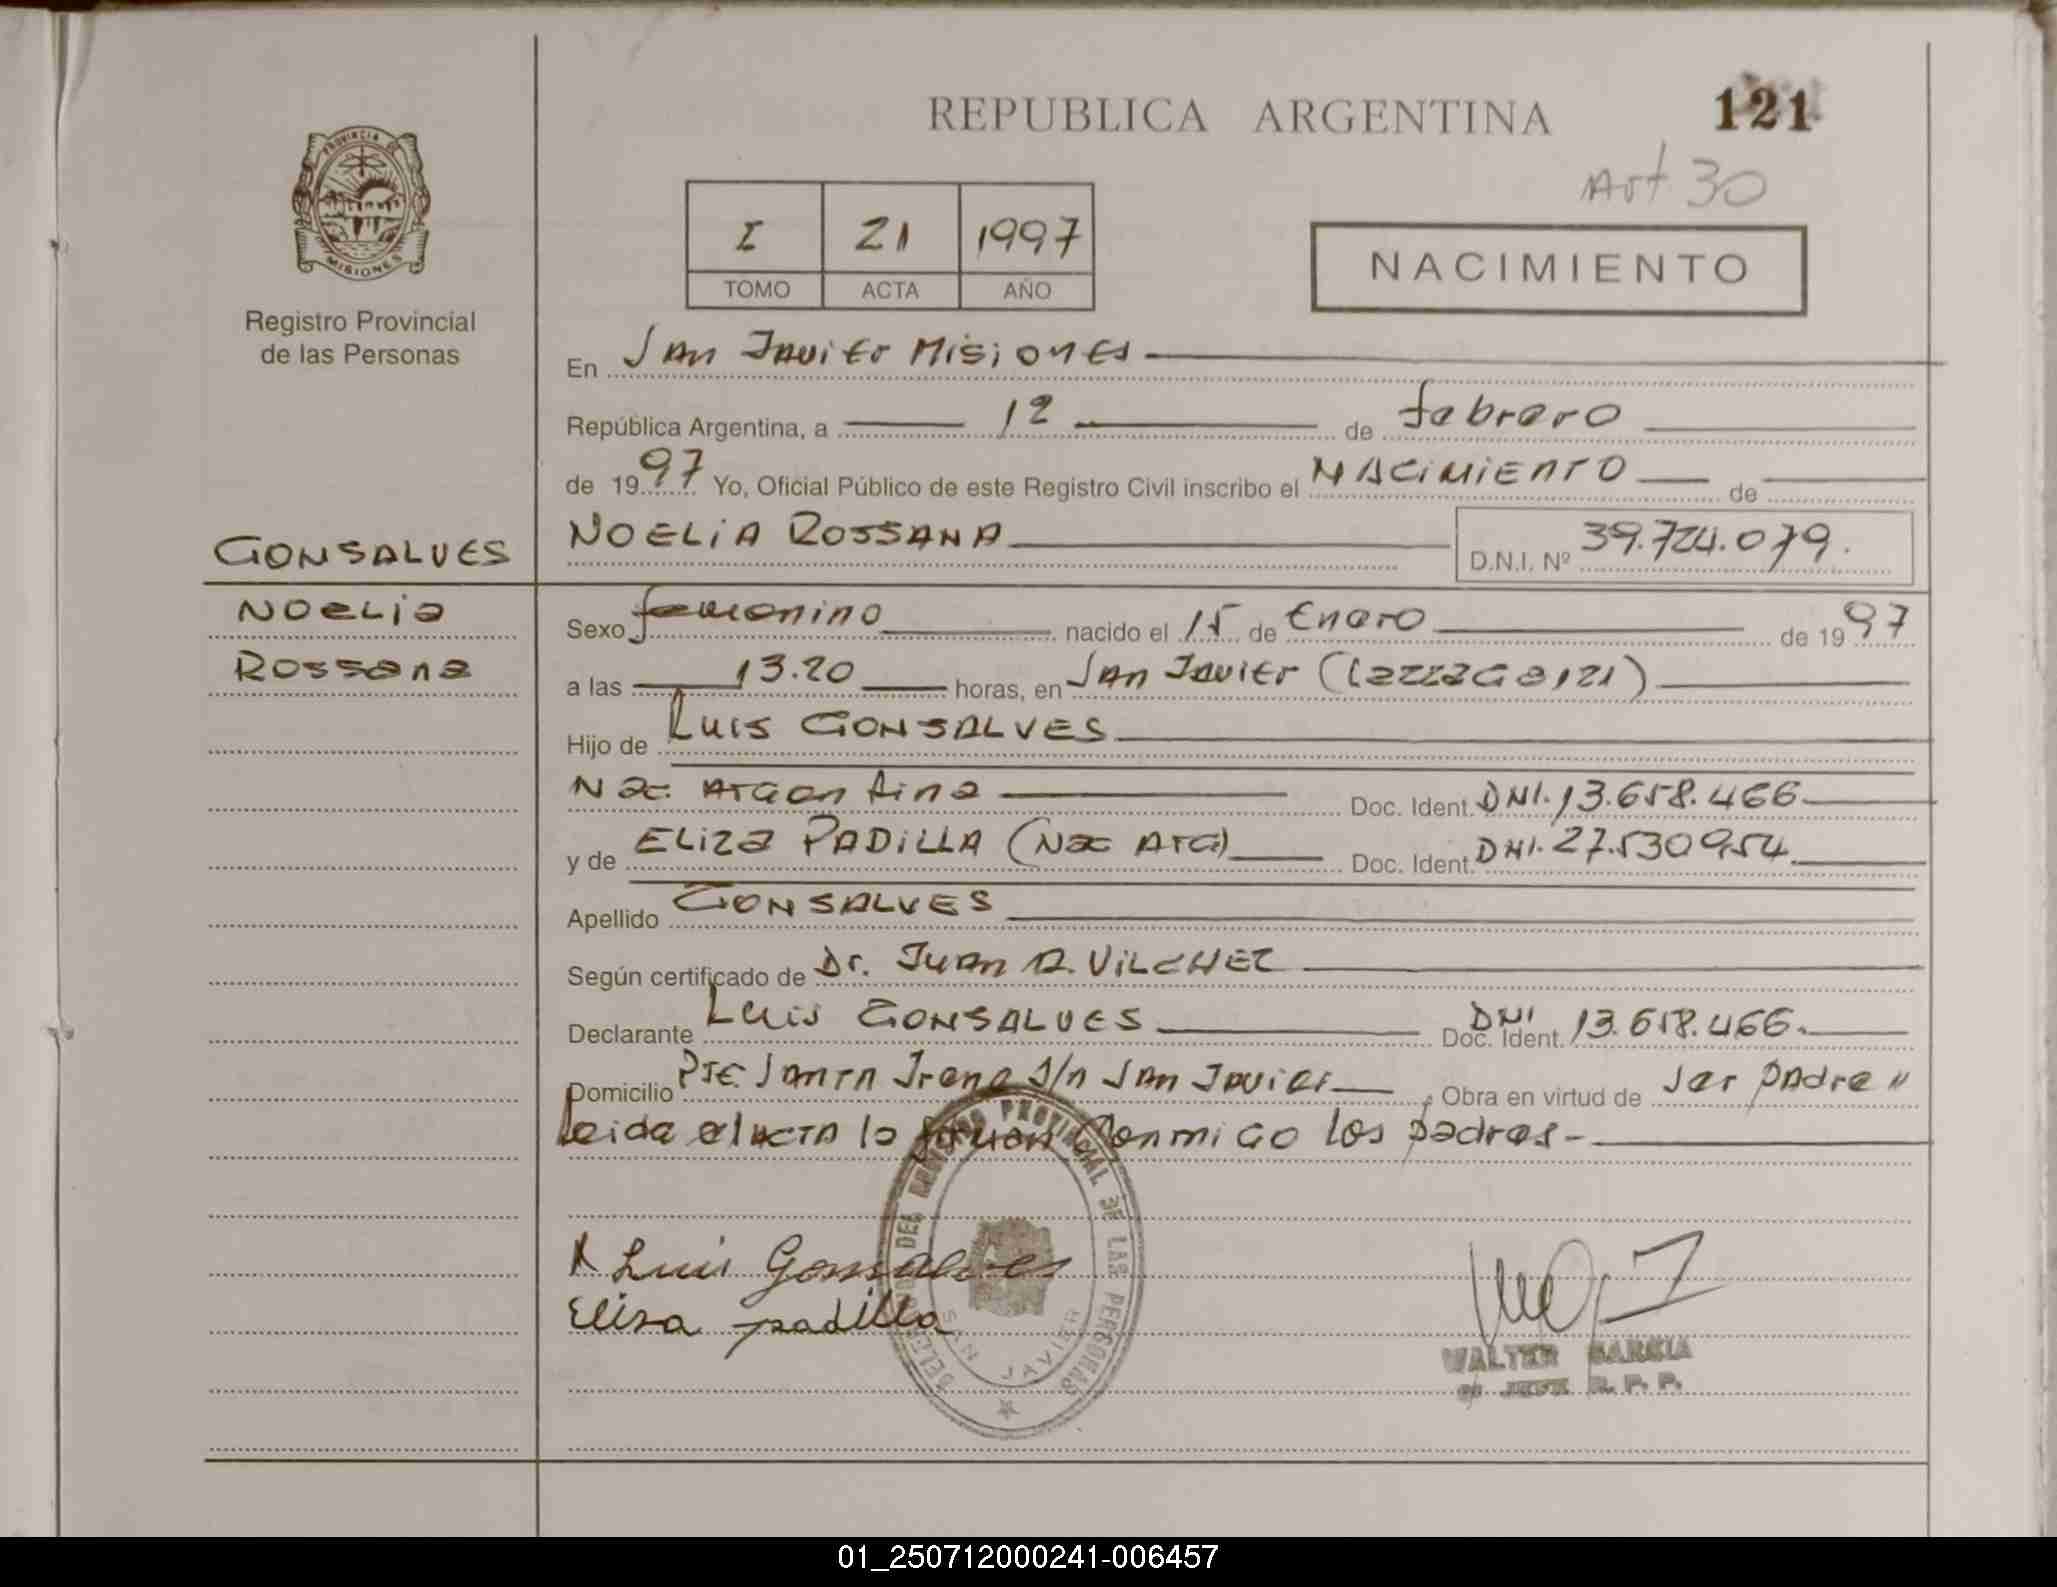 REPUBLICA ARGENTINA
121
Art 30
PROVINCIA DE
MISIONES
Registro Provincial
de las Personas
I 21 1997
TOMO ACTA AÑO
NACIMIENTO
En San Javier Misiones
República Argentina, a 12 de febrero
de 1997 Yo, Oficial Público de este Registro Civil inscribo el NACIMIENTO de
NOELIA ROSSANA D.N.I. Nº 39.724.079.
GONSALVES
Noelia
Rossana
Sexo femenino nacido el 15 de Enero de 1997
a las 13.20 horas, en San Javier
Hijo de Luis GONSALVES
Nac. Argentina Doc. Ident. DNI. 13.658.466
y de ELiza PADILLA (Nac ArG) Doc. Ident. DNI. 27.530954
Apellido GONSALVES
Según certificado de Dr. Juan A. VILCHEZ
Declarante Luis GONSALVES Doc. Ident. DNI 13.658.466.
Domicilio Pje. Santa Irene S/n San Javier Obra en virtud de ser padre "
Leida el acta la firman Conmigo los padres-
x Luis Gonsalves
Elisa padilla
DELEGADO DEL REGISTRO PROVINCIAL DE LAS PERSONAS
SAN JAVIER
WALTER GARCIA
JEFE R. P. P.
01_250712000241-006457